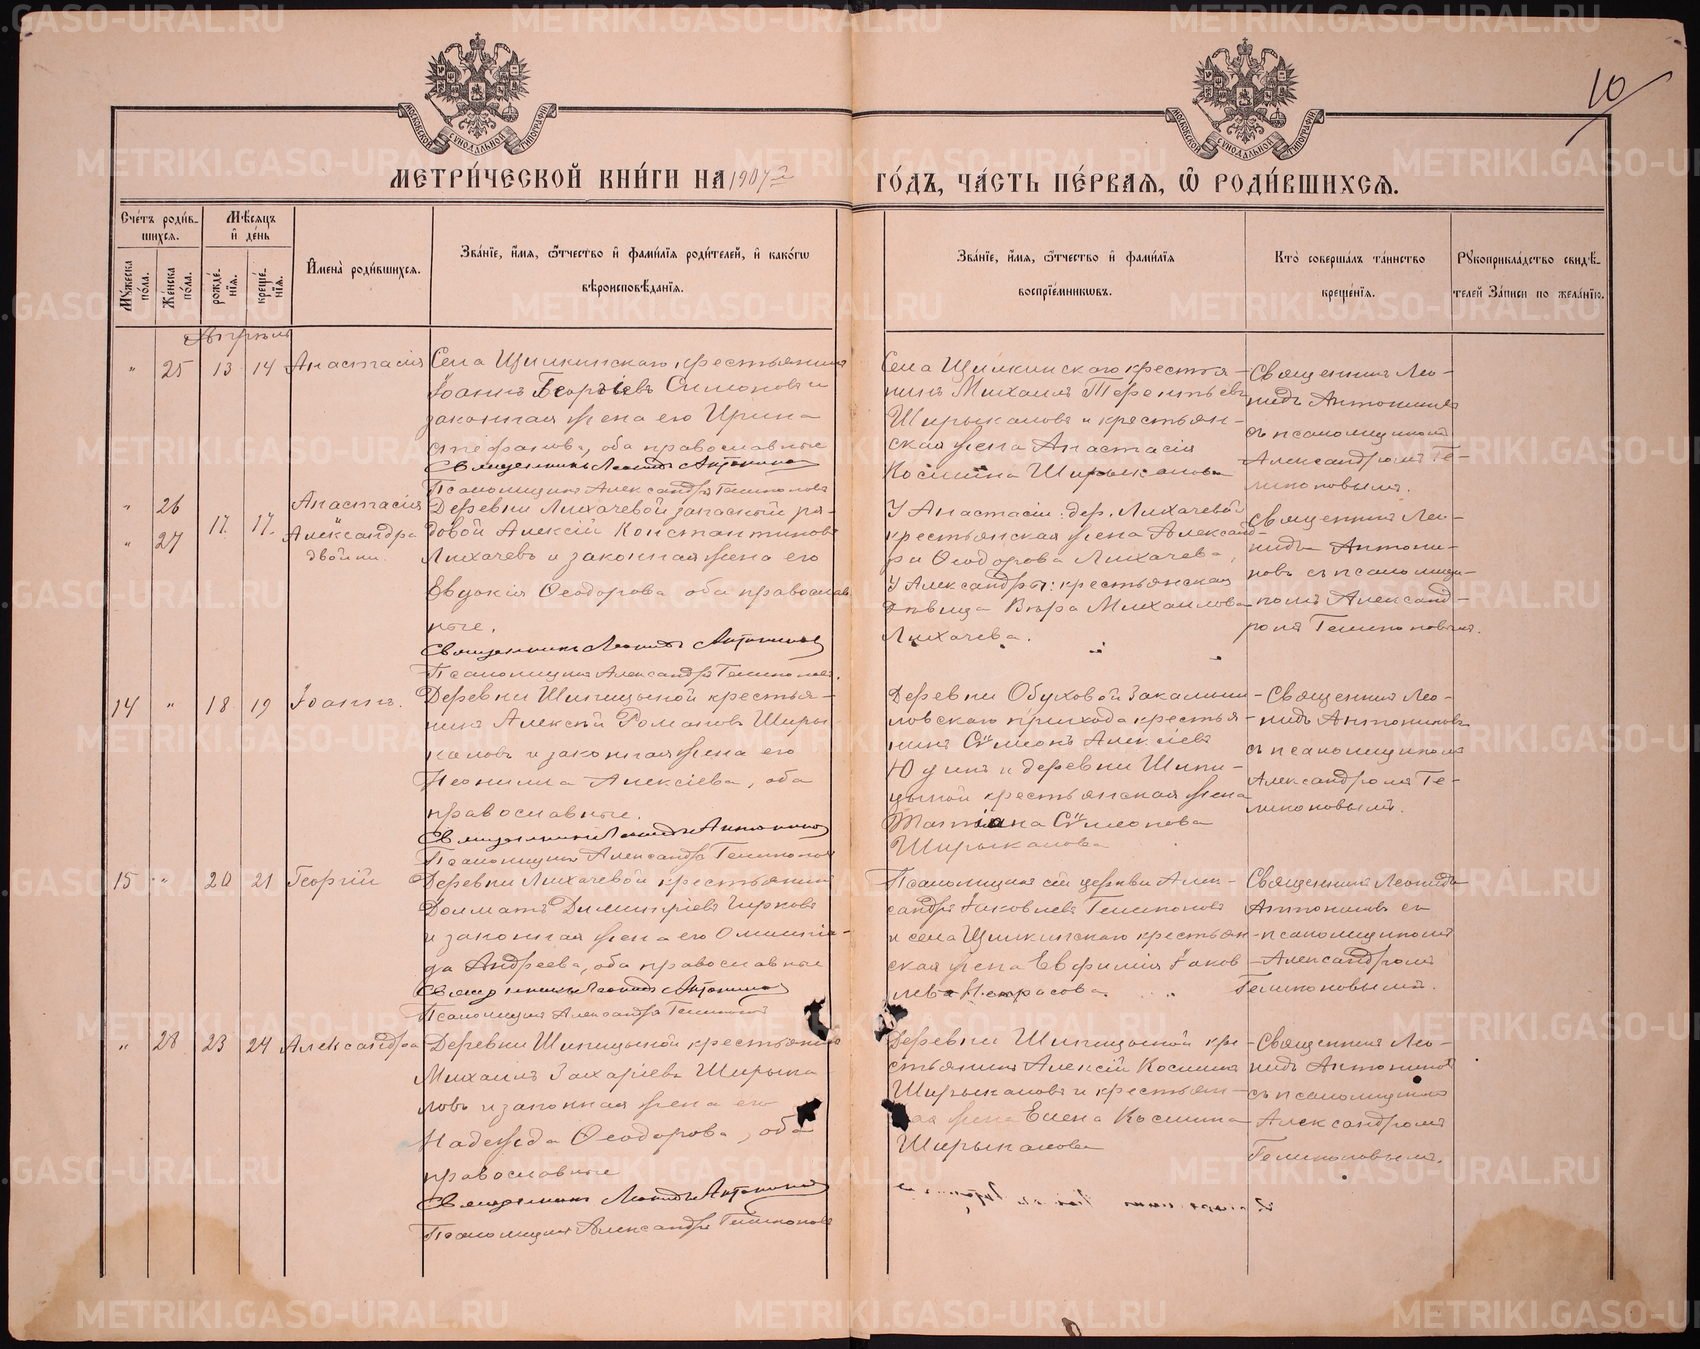 10
МОСКОВСКОЙ СѴНОДАЛЬНОЙ ТИПОГРАФІИ
МОСКОВСКОЙ СѴНОДАЛЬНОЙ ТИПОГРАФІИ
МЕТРИ́ЧЕСКОЙ КНИ́ГИ НА 1907 го́дъ, ча́сть пе́рваѧ, ѡ҆ роди́вшихсѧ.
Сче́тъ роди́в-
шихсѧ.
Мꙋ́жеска по́ла.
Же́нска по́ла.
Мѣ́сѧцъ и҆ де́нь
рожде́-
нїѧ.
креще́-
нїѧ.
И҆мена̀ роди́вшихсѧ.
Зва́нїе, и҆́мѧ, ѻ҆́тчество и҆ фами́лїѧ роди́телей, и҆ како́гѡ
вѣроисповѣ́данїѧ.
Зва́нїе, и҆́мѧ, ѻ҆́тчество и҆ фами́лїѧ
воспрїе́мникѡвъ.
Кто̀ соверша́лъ та́инство
креще́нїѧ.
Рꙋкоприкла́дство свидѣ́-
телей за́писи по жела́нїю.
Апрѣль
" 25 13 14 Анастасія
Села Щипкинскаго крестьянинъ
Іоаннъ Георгіевъ Симоновъ и
законная жена его Ирина
Стефанова, оба православные
Священникъ Леонидъ Антониновъ
Псаломщикъ Александръ Гешпоновъ
Села Щипкинскаго крестья-
нинъ Михаилъ Терентьевъ
Ширыкаловъ и крестьян-
ская жена Анастасія
Косьмина Ширыкалова
Священникъ Лео-
нидъ Антониновъ
съ псаломщикомъ
Александромъ
" 26 Анастасія
" 27 17. 17. Александра
двойни
Деревни Лихачевой запасный ря-
довой Алексій Константиновъ
Лихачевъ и законная жена его
Евдокія Ѳеодорова, оба православ
ные.
Священникъ Леонидъ Антониновъ
Псаломщикъ Александръ
У Анастасіи: дер. Лихачевой
крестьянская жена Александ-
ра Ѳеодорова Лихачева,
У Александры: крестьянская
дѣвица Вѣра Михаилова
Лихачева.
Священникъ Лео-
нидъ Антони-
новъ съ псаломщи-
комъ Александ-
ромъ
14 " 18 19 Іоаннъ.
Деревни Шипицыной крестья-
нинъ Алексій Романовъ Ширы-
каловъ и законная жена его
Неонилла Алексіева, оба
православные.
Священникъ Леонидъ Антониновъ
Псаломщикъ Александръ
Деревни Обуховой
ловскаго прихода крестья-
нинъ Сѵмеонъ Алексіевъ
Юдинъ и деревни Шипи-
цыной крестьянская жена
Татіана Сѵмеонова
Ширыкалова
Священникъ Лео-
нидъ Антониновъ
съ псаломщикомъ
Александромъ
15 " 20 21 Георгій
Деревни Лихачевой крестьянинъ
Долматъ Димитріевъ Чирковъ
и законная жена его Олимпіа-
да Андреева, оба православные
Священникъ Леонидъ Антониновъ
Псаломщикъ Александръ
Псаломщикъ сей церкви Алек-
сандръ Іаковлевъ
и села Щипкинскаго крестьян-
ская жена Евфимія Іаков
лева Некрасова.
Священникъ Леонидъ
Антониновъ съ
псаломщикомъ
Александромъ
" 28 23 24 Александра
Деревни Шипицыной крестьянинъ
Михаилъ Захаріевъ Ширыка
ловъ и законная жена его
Надежда Ѳеодорова, оба
православные
Священникъ Леонидъ Антониновъ
Псаломщикъ Александръ
Деревни Шипицыной кре
стьянинъ Алексій Косминъ
Ширыкаловъ и крестьян-
ская жена Елена Космина
Ширыкалова
Священникъ Лео-
нидъ Антониновъ
съ псаломщикомъ
Александромъ
METRIKI.GASO-URAL.RU